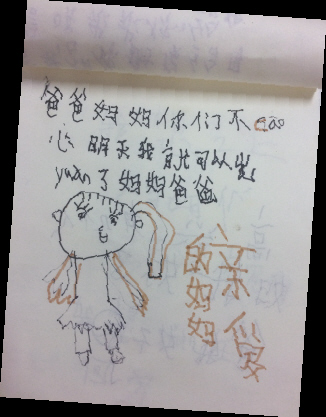 爸爸妈妈你们不
心明天我就可以出
yuan了妈妈爸爸
亲爱
的妈妈